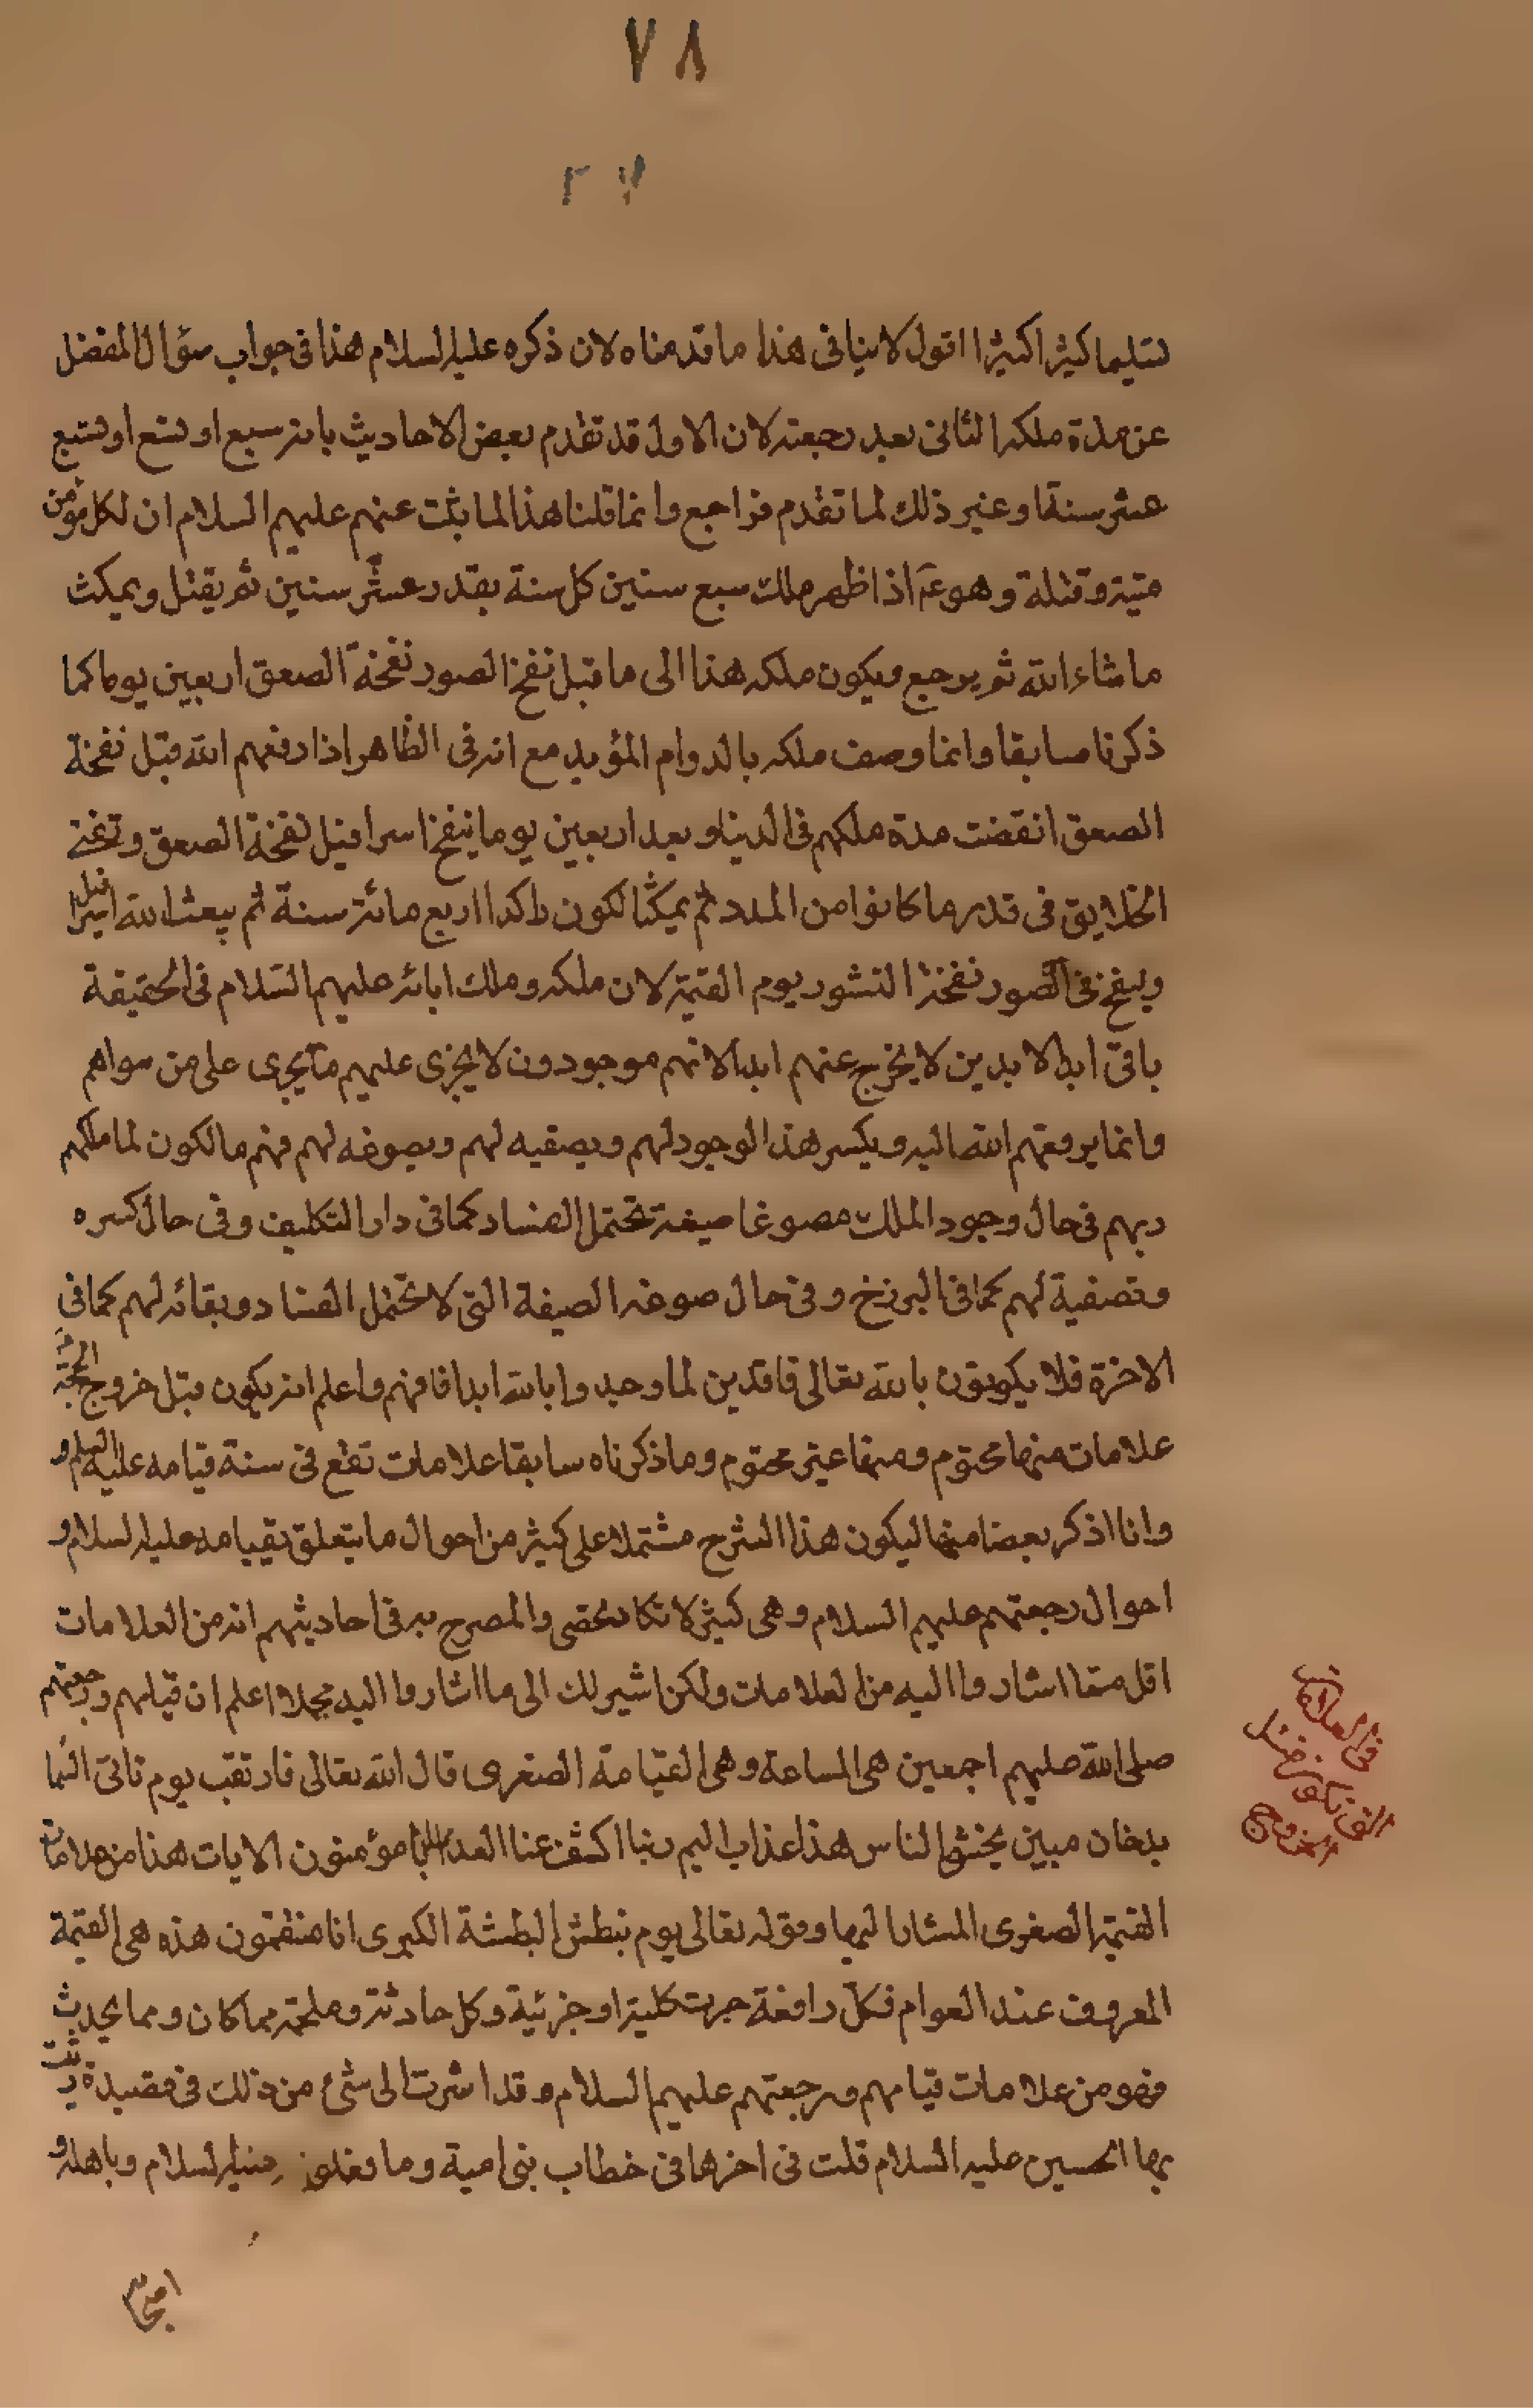 ٧٨
تسليما كثيرا كثيرا اقول لا ينافى هذا ما قدمناه لان ذكره عليه السلام هذا فى جواب سؤال المفضل
عن مدة ملكه الثانى بعد رجعته لان الاول قد تقدم بعض الاحاديث بانه سبع او تسع او تسع
عشر سنة او غير ذلك لما تقدم فراجع وانما قلنا هذا لما ثبت عنهم عليهم السلام ان لكل مؤمن
ميتة وقتلة وهو عم اذا ظهر ملك سبع سنين كل سنة بقدر عشر سنين ثم يقتل ويمكث
ما شاء الله ثم يرجع ويكون ملكه هذا الى ما قبل نفخ الصور نفخة الصعق اربعين يوما كما
ذكرنا سابقا وانما وصف ملكه بالدوام المؤبد مع انه فى الظاهر اذا رفعهم الله قبل نفخة
الصعق انقضت مدة ملكهم فى الدنيا وبعد اربعين يوما ينفخ اسرافيل نفخة الصعق وتفنى
الخلايق فى قدر ما كانوا من المدد ثم يمكث الكون راكدا اربع مائة سنة ثم يبعث الله اسرافيل
وينفخ فى الصور نفخة النشور يوم القيمة لان ملكه وملك ابائه عليهم السلام فى الحقيقة
باقى ابد الابدين لا يخرج عنهم ابدا لانهم موجودون لا يجرى عليهم ما يجرى على من سواهم
وانما يرفعهم الله اليه ويكسر هذا الوجود لهم ويصفيه لهم ويصوغه لهم فهم مالكون لما ملكهم
ربهم فى حال وجود الملك مصوغا صيغة تحتمل الفساد كما فى دار التكليف وفى حال كسره
وتصفية لهم كما فى البرزخ وفى حال صوغه الصيغة التى لا تحتمل الفساد وبقائه لهم كما فى
الاخرة فلا يكونون بالله تعالى فاقدين لما وجدوا بالله ابدا فافهم واعلم انه يكون قبل خروج الحجة
علامات منها محتوم ومنها غير محتوم وما ذكرناه سابقا علامات تقع فى سنة قيامه عليه السلام و
وانا اذكر بعضا منها ليكون هذا الشرح مشتملا على كثير من احوال ما يتعلق بقيامه عليه السلام و
احوال رجعتهم عليهم السلام وهى كثيرة لا تكاد تحصى والمصرح به فى احاديثهم انه من العلامات
اقل مما اشاروا اليه من العلامات ولكن اشير لك الى ما اشاروا اليه مجملا اعلم ان قيامهم ورجعتهم
صلى الله عليهم اجمعين هى الساعة وهى القيامة الصغرى قال الله تعالى فارتقب يوم تاتى السماء
بدخان مبين يغشى الناس هذا عذاب اليم ربنا اكشف عنا العذاب انا مؤمنون الايات هذا من علامات
القيمة الصغرى المشار اليها وقوله تعالى يوم نبطش البطشة الكبرى انا منتقمون هذه هى القيمة
المعروف عند العوام فكل رافعة جرت كلية او جزئية وكل حادثة وملحمة مما كان ومما يحدث
فهو من علامات قيامهم ورجعتهم عليهم السلام وقد اشرت الى شئ من ذلك فى قصيدة رثيت
بها الحسين عليه السلام قلت فى اخرها فى خطاب بنى امية وما فعلوا عليه السلام وباهله و
فى العلامات
التى تكون قبل
الخروج